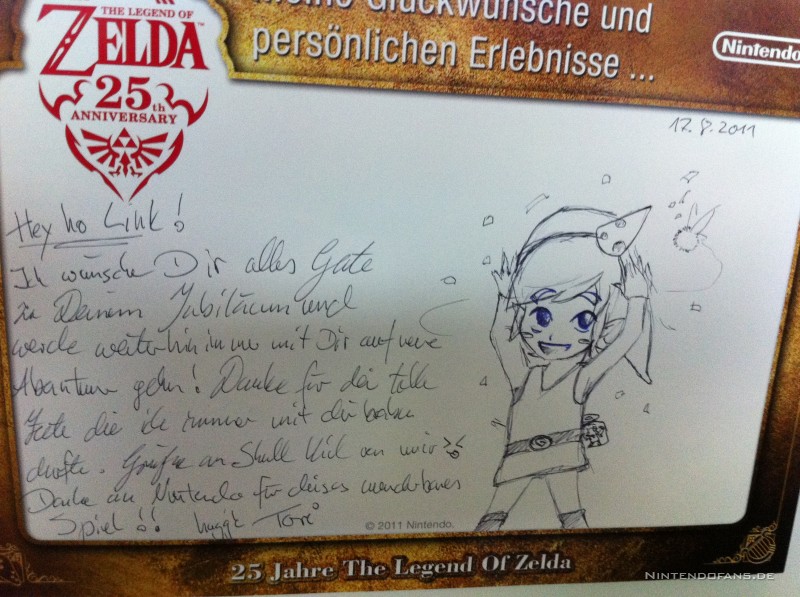 THE LEGEND OF
ZELDA
25th
ANNIVERSARY
Glückwünsche und
persönlichen Erlebnisse ...
Nintendo
17.8.2011
Hey ho Link!
Ich wünsche Dir alles Gute
zu Deinem Jubiläum und
werde weiterhin immer mit Dir auf neue
Abenteuer gehen! Danke für die tolle
Zeit die ich immer mit dir haben
durfte. Grüße an Skull Kid von mir
Danke an Nintendo für dieses wunderbares
Spiel!! huggt
© 2011 Nintendo.
25 Jahre The Legend Of Zelda
NINTENDOFANS.DE